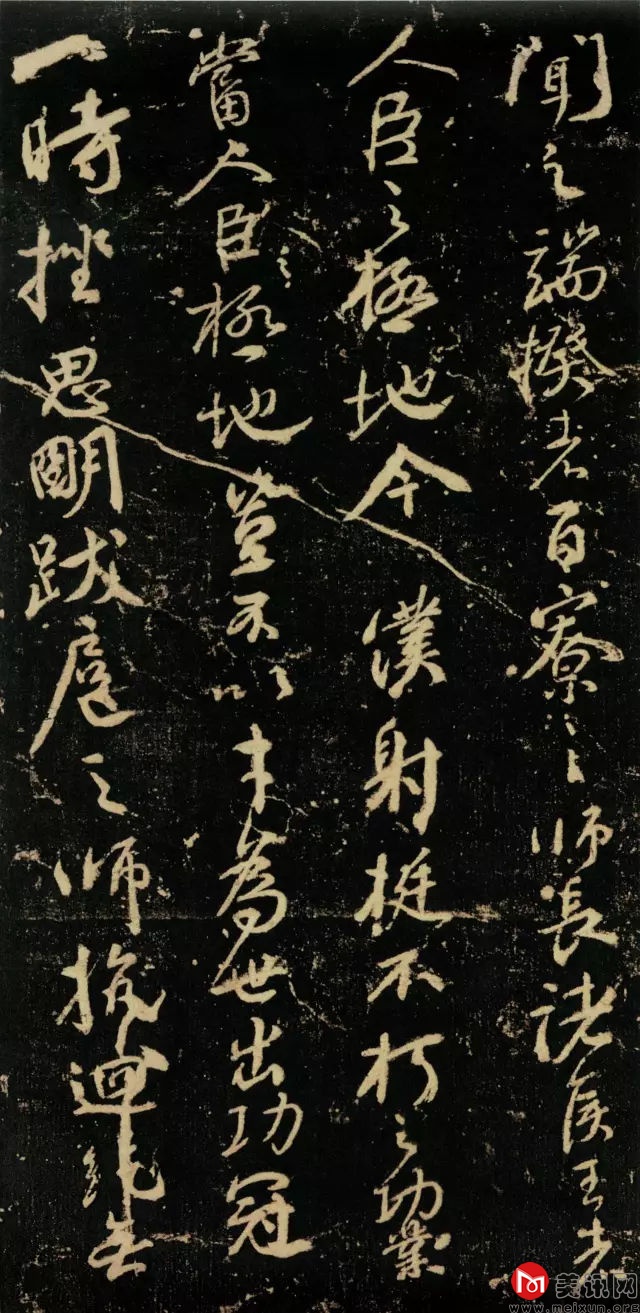 聞之端揆者百寮之師長諸侯王者
人臣之極地今僕射挺不朽之功業
當人臣之極地豈不以才為世出功冠
一時挫思明跋扈之師抗迴紇無
美讯网
www.meixun.org